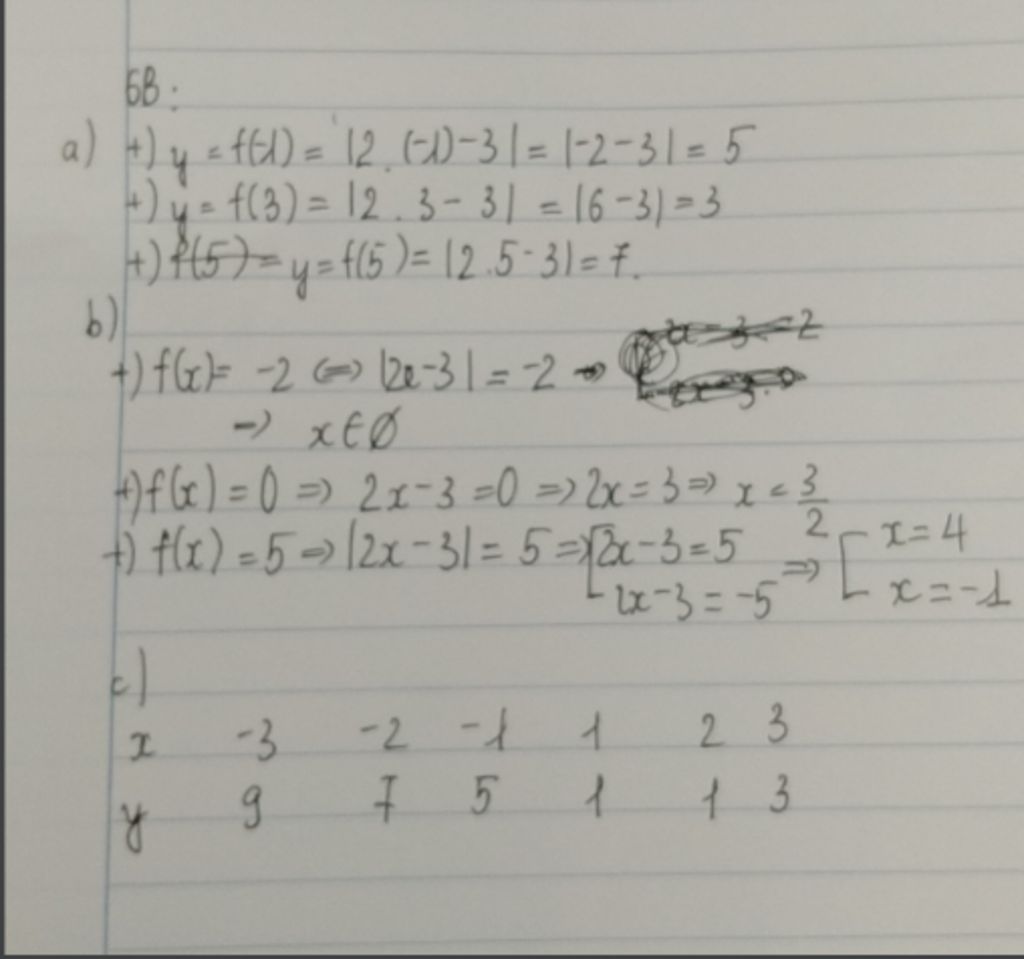 6B:
a) +) y = f(-1) = |2.(-1)-3| = |-2-3| = 5
+) y = f(3) = |2.3-3| = |6-3| = 3
+) f(5) = y = f(5) = |2.5-3| = 7.
b)
+) f(x) = -2 <=> |2x-3| = -2 =>
=> x∈∅
+) f(x) = 0 => 2x-3 = 0 => 2x = 3 => x = 3/2
+) f(x) = 5 => |2x-3| = 5 => [2x-3 = 5 => [x = 4
2x-3 = -5 x = -1
c)
x -3 -2 -1 1 2 3
y 9 7 5 1 1 3